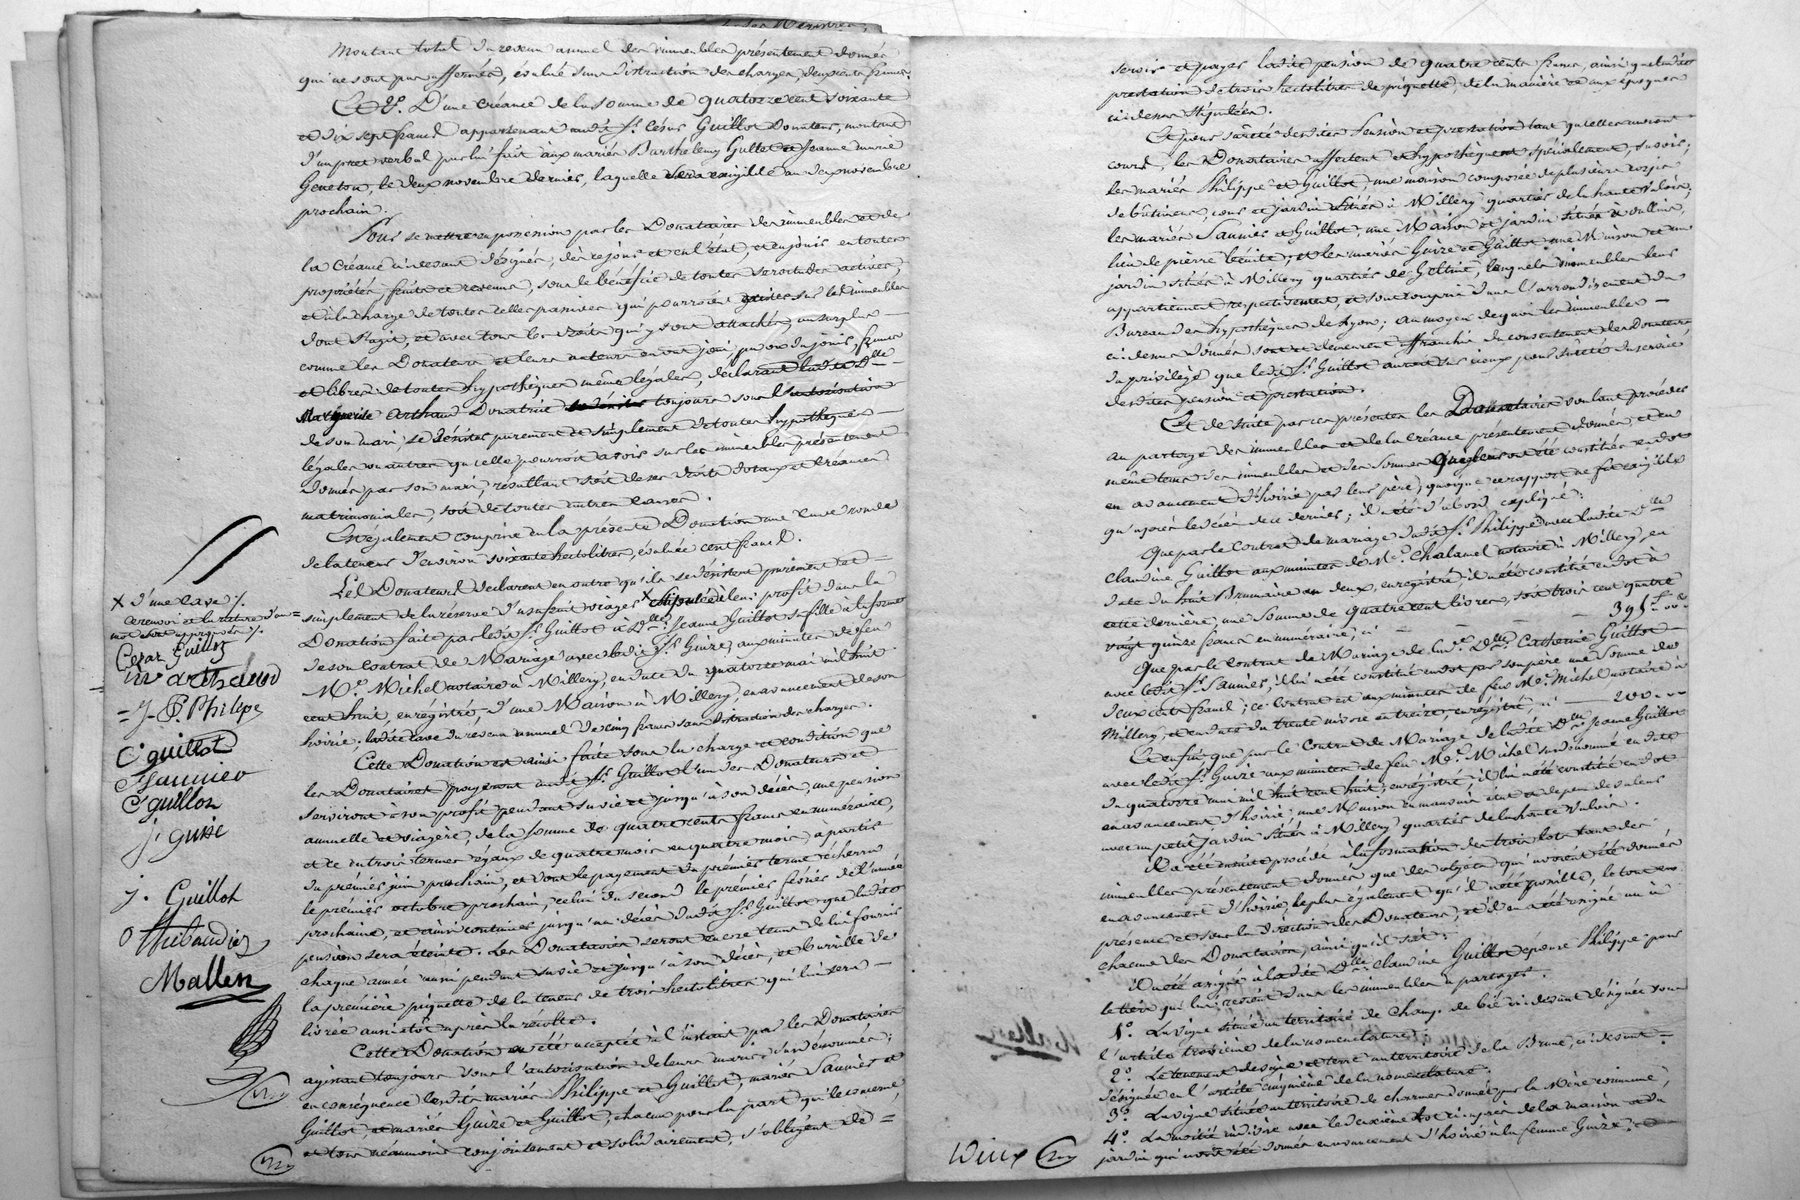 Montant total du revenu annuel des immeubles présentement donnés
qui ne sont pas affermés, évalué sans distraction des charges, deux cents francs.
Et 2º. D'une créance de la somme de quatorze cent soixante
et dix sept francs appartenant audit Sr. César Guillot Donateur, montant
d'un prêt verbal par lui fait aux mariés Barthelemy Gullet et Jeanne marie
Geneton, le deux novembre dernier, laquelle sera exigible au deux novembre
prochain.
Pour se mettre en possession par les Donataires des immeubles et de
la Créance ci devant désignés, dès ce jour et en l'état, et en jouir en toutes
propriétés, fruits et revenus, sous le bénéfice de toutes servitudes actives,
et à la charge de toutes celles passives qui pourroient exister sur les immeubles
dont s'agit, et avec tous les droits qui y sont attachés, au surplus
comme les Donateurs et leurs auteurs en ont joui, pu ou dû jouir, francs
et libres de toutes hypothèques même légales, déclarant ladite Dlle
Marguerite Arthaud Donatrice toujours sous l'autorisation
de son mari, se désister purement et simplement de toutes hypothèques
légales ou autres qu'elle pourroit avoir sur les immeubles présentement
donnés par son mari, résultant soit de ses droits dotaux et Créances
matrimoniales, soit de toutes autres causes.
Est également comprise en la présente Donation une Cuve ronde
de la teneur d'environ soixante hectolitres, évaluée cent francs.
Les Donateurs déclarent en outre qu'ils se désistent purement et
simplement de la réserve d'usufruit viager × stipulée à leur profit dans la
Donation faite par ledit Sr. Guillot à Dlle. Jeanne Guillot sa fille à la forme
de son contrat de Mariage avec ledit Sr. Guize, aux minutes de feu
Me. Michel notaire à Millery, en date du quatorze mai mil huit
cent huit, enregistré, d'une Maison à Millery, en avancement de son
hoirie, ladite cave du revenu annuel de cinq francs sans distraction des charges.
Cette Donation est ainsi faite sous la charge et condition que
les Donataires payeront audit Sr. Guillot l'un des Donateurs et
serviront à son profit pendant sa vie et jusqu'à son décès, une pension
annuelle et viagère, de la somme de quatre cents francs en numéraire,
et ce en trois termes égaux de quatre mois en quatre mois, à partir
du premier juin prochain, et dont le payement du premier terme écherra
le premier octobre prochain, celui du second le premier février de l'année
prochaine, et ainsi continuer jusqu'au décès dudit Sr. Guillot que ladite
pension sera éteinte. Les Donataires seront encore tenus de lui fournir
chaque année aussi pendant sa vie et jusqu'à son décès, et
la première piquette de la teneur de trois hectolitres qui lui sera
livrée aussitôt après la récolte.
Cette Donation a été acceptée à l'instant par les Donataires
agissant toujours sous l'autorisation de leurs maris susdénommés;
en conséquence lesdits mariés Philippe et Guillot, mariés Saunier et
Guillot, et mariés Guize et Guillot, chacun pour la part qui le concerne,
et tous néanmoins conjointement et solidairement, s'obligent de =
× d'une cave /.
ce renvoi et la rature d'un =
mot sont approuvés /.
Cesar Guillot
m arthaud
= J. P. Philipe
C guillot
Saunier
C guillon
J. guise
j. Guillot
Thibaudier
Mallen
servir et payer ladite pension de quatre cents francs, ainsi que ladite
prestation de trois hectolitres de piquette, de la manière et aux époques
ci dessus stipulées.
Et pour sûreté desdites Pension et prestation tant qu'elles auront
cours, les Donataires affectent et hypothèquent spécialement, savoir;
les mariés Philippe et Guillot, une maison composée de plusieurs corps
de bâtimens, cour et jardin situés à Millery quartier de la haute Valois;
les mariés Saunier et Guillot, une Maison et jardin situés à oullins,
lieu de pierre bénite; et les mariés Guize et Guillot une Maison et un
jardin situés à Millery quartier de Geltine, lesquels immeubles leur
appartiennent respectivement, et sont compris dans l'arrondissement du
Bureau des hypothèques de Lyon; au moyen de quoi les immeubles
ci dessus donnés sont et demeurent affranchis du consentement des Donateurs,
du privilège que ledit Sr. Guillot auroit sur iceux pour sûreté du service
desdites pension et prestation.
Et de suite par ces présentes les Donataires voulant procéder
au partage des immeubles et de la créance présentement donnés, et en
même tems des immeubles et des sommes qui leur ont été constitués en dot
en avancement d'hoirie par leur père, quoique ce rapport ne fût exigible
qu'après le décès de ce dernier; il a été d'abord expliqué:
Que par le Contrat de mariage dudit Sr. Philippe avec ladite Dlle
Claudine Guillot aux minutes de Me. Chalamel notaire à Millery, en
date du huit Brumaire an deux, enregistré, il a été constitué en dot à
cette dernière, une somme de quatre cent livres, soit trois cent quatre
vingt quinze francs en numéraire, ci — — — 395 f. 00 c.
Que par le Contrat de Mariage de lad. Dlle Catherine Guillot
avec ledit Sr. Saunier, il lui a été constitué en dot par son père une Somme de
deux cents francs; ce contrat est aux minutes de feu Me. Michel notaire à
Millery, et en date du trente nivose an treize, enregistré, ci — 200 . —
Et enfin, que par le Contrat de Mariage de ladite Dlle Jeanne Guillot
avec ledit Sr. Guize aux minutes de feu Me. Michel susdénommé en date
du quatorze mai mil huit cent huit, enregistré, il lui a été constitué en dot
en avancement d'hoirie, une Maison en mauvais état et de peu de valeur
avec un petit jardin situés à Millery quartier de la haute Valois.
Il a été ensuite procédé à la formation des trois lots tant des
immeubles présentement donnés que des objets qui avoient été donnés
en avancement d'hoirie, le plus également qu'il a été possible, le tout en
présence et sous la direction des Donateurs, et il en a été assigné un à
chacune des Donataires, ainsi qu'il suit:
Il a été assigné à ladite Dlle. Claudine Guillot épouse Philippe pour
le tiers qui lui revient dans les immeubles à partager.
1º. La vigne située au territoire de Champ. de blé ci devant désignée sous
l'article troisième de la nomenclature.
2º. Le tenement de vigne et terre au territoire de la Brune, ci devant =
désigné en l'article cinquième de la nomenclature.
3º. La vigne située au territoire de charmes donnée par la Mère commune,
4º. La moitié indivise avec le deuxième lot ci après de la maison et du
jardin qui avoit été donnés en avancement d'hoirie à la femme Guize; —